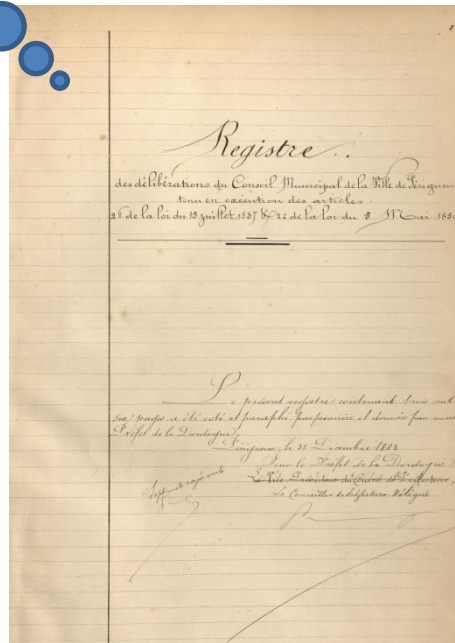 Registre
des délibérations du Conseil Municipal de la Ville de Périgueu
tenu en exécution des articles
28 de la loi du 18 juillet 1837 & 22 de la loi du 5 Mai 185
Le présent registre contenant trois cent
six pages a été coté et paraphé par première et dernière par nous
Préfet de la Dordogne
Périgueux, le 31 Décembre 1883
Pour le Préfet de la Dordogne
Le Vice Président du Conseil de Préfecture,
Le Conseiller de Préfecture Délégué